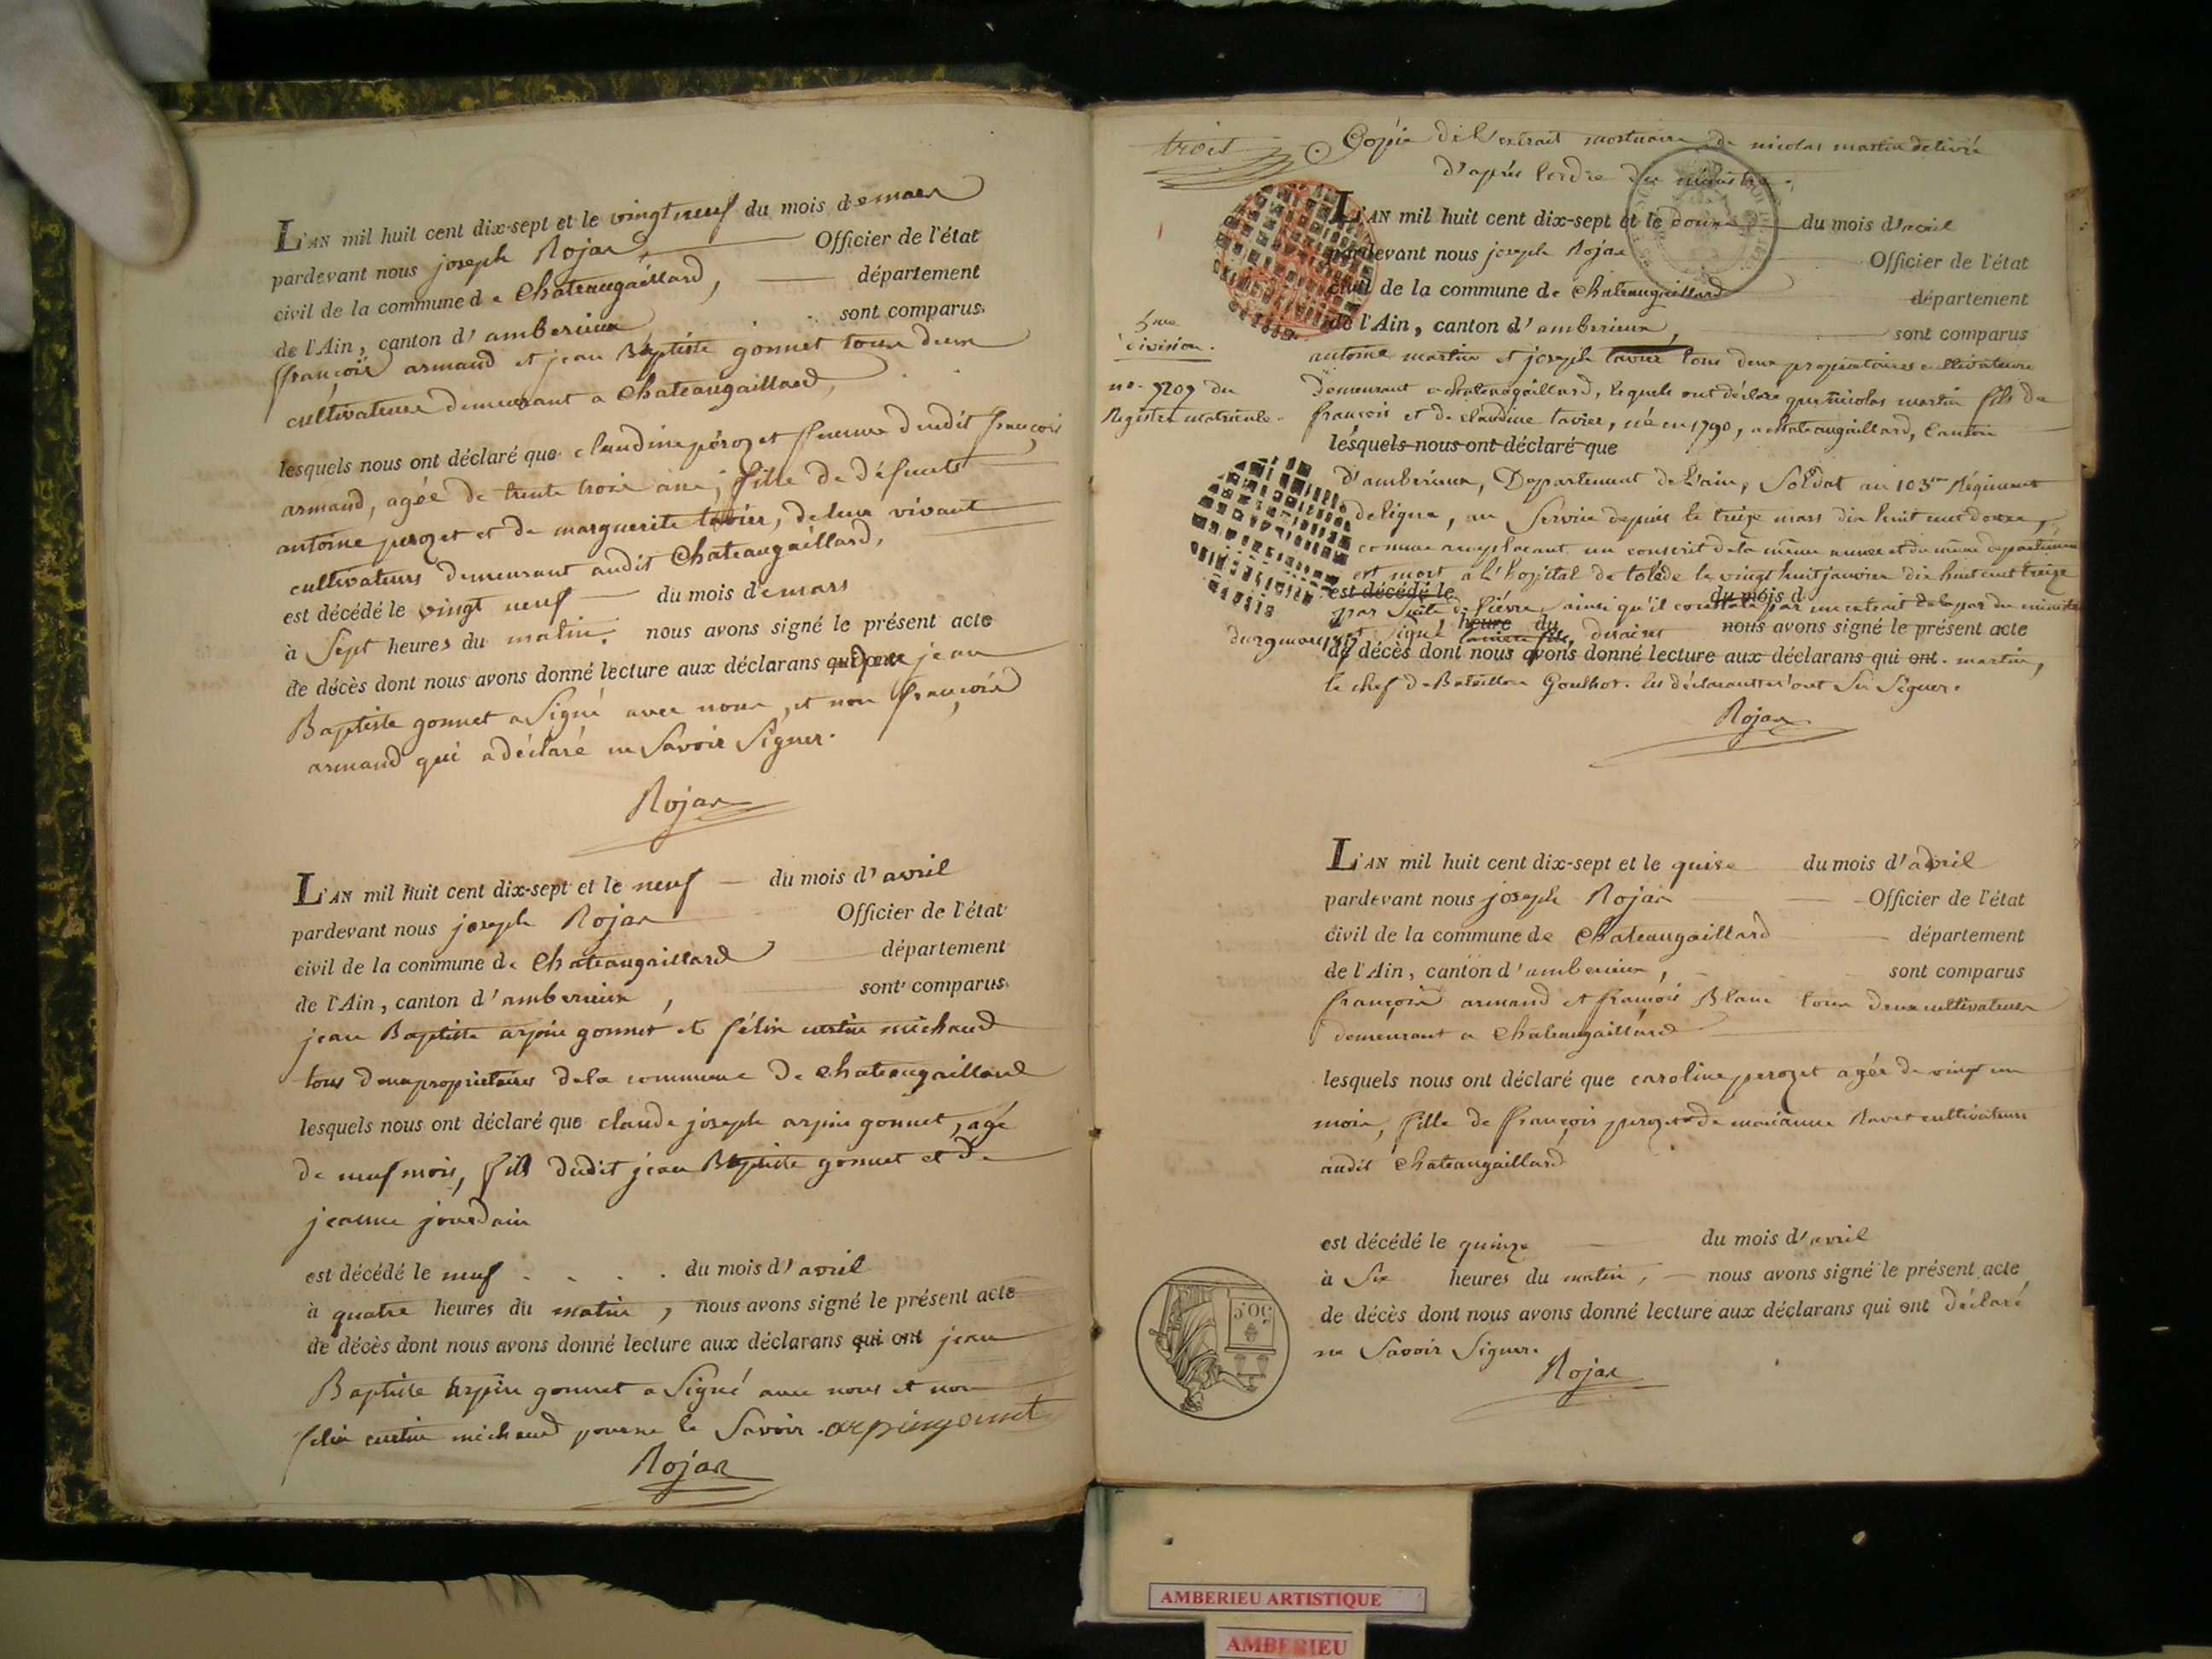 L'AN mil huit cent dix-sept et le vingt neuf du mois demars
pardevant nous joseph Rojar Officier de l'état
civil de la commune de Chateaugaillard, département
de l'Ain, canton d'amberieux sont comparus
françois armand et jean Baptiste gonnet tous deux
cultivateurs demeurant a Chateaugaillard,
lesquels nous ont déclaré que claudine pérozet femme dudit françois
armand, agée de trente trois ans, fille de défunts
antoine perozet et de marguerite tavier, deleur vivant
cultivateurs demeurant audit Chateaugaillard,
est décédé le vingt neuf du mois demars
à Sept heures du matin, nous avons signé le présent acte
de décès dont nous avons donné lecture aux déclarans que jean
Baptiste gonnet a Signé avec nous, et non françois
armand qui a déclaré ne Savoir Signer.
Rojar
L'AN mil huit cent dix-sept et le neuf du mois d'avril
pardevant nous joseph Rojar Officier de l'état
civil de la commune de Chateaugaillard département
de l'Ain, canton d'amberieux, sont comparus
jean Baptiste arpin gonnet et félix michaud
tous deux propriétaires dela commune de chateaugaillard
lesquels nous ont déclaré que claude joseph arpin gonnet, agé
de neuf mois, fils dudit jean Baptiste gonnet et de
jeanne jourdain
est décédé le neuf du mois d'avril
à quatre heures du matin, nous avons signé le présent acte
de décès dont nous avons donné lecture aux déclarans qui ont jean
Baptiste arpin gonnet a Signé avec nous et non
félix michaud pour ne le Savoir. arpin gonnet
Rojar
trois
Copie del'extrait mortuaire de nicolas martin délivré
d'après l'ordre du ministre.
L'AN mil huit cent dix-sept et le douze du mois d'avril
pardevant nous joseph Rojar Officier de l'état
civil de la commune de Chateaugaillard département
de l'Ain, canton d'amberieux, sont comparus
5me
division.
no. 9209 du
Registre matricule.
antoine martin et joseph tavier tous deux propriétaires cultivateurs
demeurant a chateaugaillard, lesquels ont déclaré que nicolas martin fils de
françois et de claudine tavier, né en 1790, a chateaugaillard, canton
lesquels nous ont déclaré que
d'amberieux, Département del'ain, Soldat au 103me Régiment
deligne, au Service depuis le treize mars dix huit cent douze,
comme remplacant un conscrit dela même année et du même département
est mort a l'hopital de toléde le vingt huit janvier dix huit cent treize
est décédé le du mois d
par Suite de fiévre, ainsi qu'il constate par un extrait
heure du nous avons signé le présent acte
de décès dont nous avons donné lecture aux déclarans qui ont. martin,
le chef de Bataillon Goulhot. les déclarants n'ont Su Signer.
Rojar
L'AN mil huit cent dix-sept et le quise du mois d'avril
pardevant nous joseph Rojar Officier de l'état
civil de la commune de Chateaugaillard département
de l'Ain, canton d'amberieux, sont comparus
françois armand et françois Blanc tous deux cultivateurs
demeurant a Chateaugaillard
lesquels nous ont déclaré que caroline perozet agée de vingt un
mois, fille de françois perozet de marianne Ravet cultivateurs
audit Chateaugaillard
est décédé le quinze du mois d'avril
à Six heures du matin, nous avons signé le présent acte
de décès dont nous avons donné lecture aux déclarans qui ont déclaré
ne Savoir Signer.
Rojar
50c
AMBERIEU ARTISTIQUE
AMBERIEU